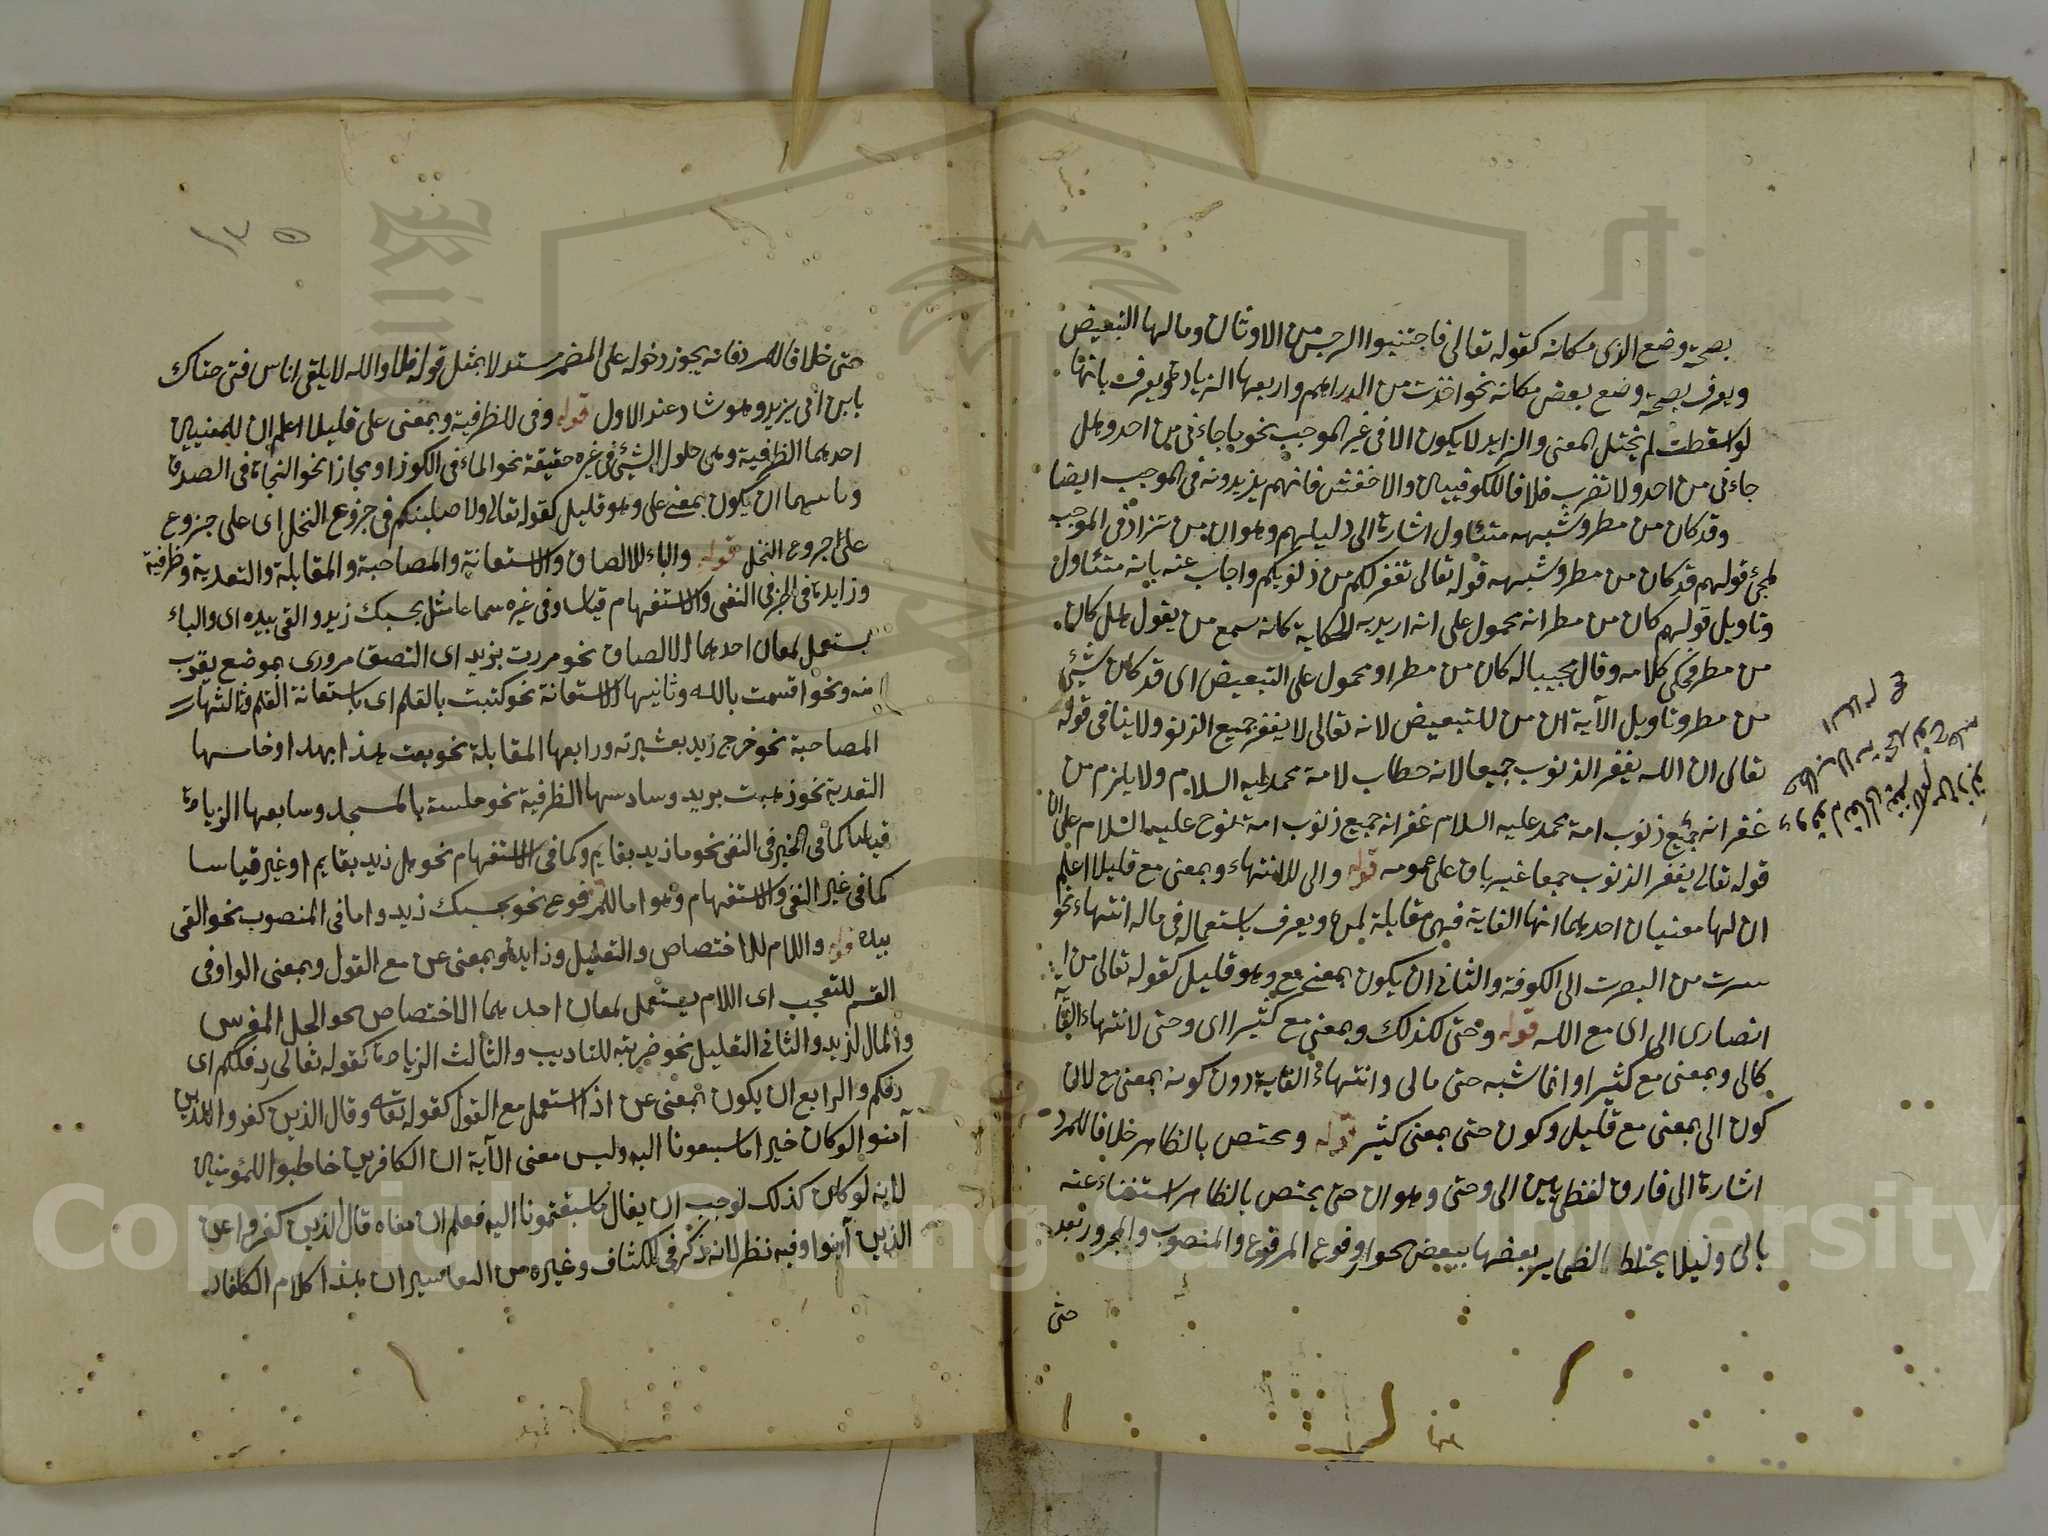 بصحة وضع الذي مكانه كقوله تعالى فاجتنبوا الرجس من الاوثان وثالثها التبعيض
ويعرف بصحة وضع بعض مكانه نحو اخذت من الدراهم واربعها الزيادة ويعرف بانها
لو اسقطت لم يختل المعنى والزايد لا يكون الا في غير الموجب نحو ما جاءني من احد وهل
جاءني من احد ولا تضرب خلافا للكوفيين والاخفش فانهم يزيدونه في الموجب ايضا
وقد كان من مطر وشبهه متئاول اشارة الى دليلهم وهو ان من تزاد في الموجب
لمجئ قولهم قد كان من مطر وشبهه قوله تعالى نغفر لكم من ذنوبكم واجاب عنه بانه متئاول
وتاويل قولهم كان من مطر انه محمول على انه اريد به الحكاية كانه سمع من يقول هل كان
من مطر فحكى كلامه وقال مجيبا له كان من مطر او محمول على التبعيض اى قد كان شئ
من مطر وتاويل الآية ان من للتبعيض لانه تعالى لا يغفر جميع الذنوب ولا ينافى قوله
تعالى ان الله يغفر الذنوب جميعا لانه خطاب لامة محمد عليه السلام ولا يلزم من
غفرانه جميع ذنوب امة محمد عليه السلام غفرانه جميع ذنوب امة نوح عليهما السلام على ان
قوله تعالى يغفر الذنوب جميعا غير باق على عمومه قوله والى للانتهاء وبمعنى مع قليلا اعلم
ان لها معنيان احدهما انها الغاية فهى مقابلة لمن ويعرف باستعماله في ماله انتهاء نحو
سرت من البصرت الى الكوفة والثانى ان يكون بمعنى مع وهو قليل كقوله تعالى من
انصارى الى اى مع الله قوله وحتى كذلك وبمعنى مع كثيرا اى وحتى لانتهاء الغاية
كالى وبمعنى مع كثيرا وانما شبه حتى مالى وانتهاء الغاية دون كونه بمعنى مع لان
كون الى بمعنى مع قليل وكون حتى بمعنى كثير قوله ويختص بالظاهر خلافا للمبرد
اشارة الى فارق لفظى بين الى وحتى وهو ان حتى يختص بالظاهر استغناء عنه
بالى وليلا يختلط الضماير بعضها ببعض بجواز وقوع المرفوع والمنصوب والمجرور بعد
حتى
١٣٥
حتى خلافا للمبرد فانه يجوز دخوله على المضمر مستدلا بمثل قوله فلا والله لا يلقى اناس فتى حتاك
يابن ابى يزيد وهو شاد عند الاول قوله وفى للظرفية وبمعنى على قليلا اعلم ان لها معنيين
احدهما الظرفية وهى حلول الشئ فى غيره حقيقة نحو الماء فى الكوز او مجازا نحو النجاة فى الصدق
وثانيهما ان يكون بمعنى على وهو قليل كقوله تعالى ولاصلبنكم فى جزوع النخل اى على جزوع
على جزوع النخل قوله والباء للالصاق والاستعانة والمصاحبة والمقابلة والتعدية وظرفية
وزايدة فى الخبر فى النفى والاستفهام قياسا وفى غيره سماعا مثل بحسبك زيد والقى بيده اى والباء
يستعمل لمعان احدها الالصاق نحو مررت بزيد اى التصق مرورى بموضع يقرب
منه ونحو اقسمت بالله وثانيها الاستعانة نحو كتبت بالقلم اى باستعانة القلم وثالثها
المصاحبة نحو خرج زيد بعشيرته ورابعها المقابلة نحو بعت هذا بهذا وخامسها
التعدية نحو ذهبت بزيد وسادسها الظرفية نحو جلست بالمسجد وسابعها الزيادة
قياسا كما فى الخبر فى النفى نحو ما زيد بقايم وكما فى الاستفهام نحو هل زيد بقايم او غير قياسا
كما فى غير النفى والاستفهام وهو اما للمرفوع نحو بحسبك زيد واما فى المنصوب نحو القى
بيده قوله واللام للاختصاص والتعليل وزايدة وبمعنى عن مع القول وبمعنى الواو فى
القسم للتعجب اى اللام يستعمل لمعان احدهما الاختصاص نحو الجل للفرس
والمال لزيد والثانى التعليل نحو ضربته للتاديب والثالث الزيادة كقوله تعالى ردف لكم اى
ردفكم والرابع ان يكون بمعنى عن اذا استعمل مع القول كقوله تعالى وقال الذين كفروا للذين
آمنوا لو كان خيرا ما سبقونا اليه وليس معنى الآية ان الكافرين خاطبوا للمؤمنين
لانه لو كان كذلك لوجب ان يقال ما سبقتمونا اليه فعلم ان معناه قال الذين كفروا عن
الذين آمنوا وفيه نظر لانه ذكر فى الكشاف وغيره من التفاسير ان هذا كلام الكفار